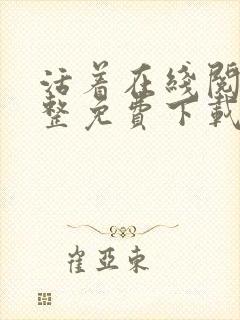 活着在线阅
整免费下载
崔亚东